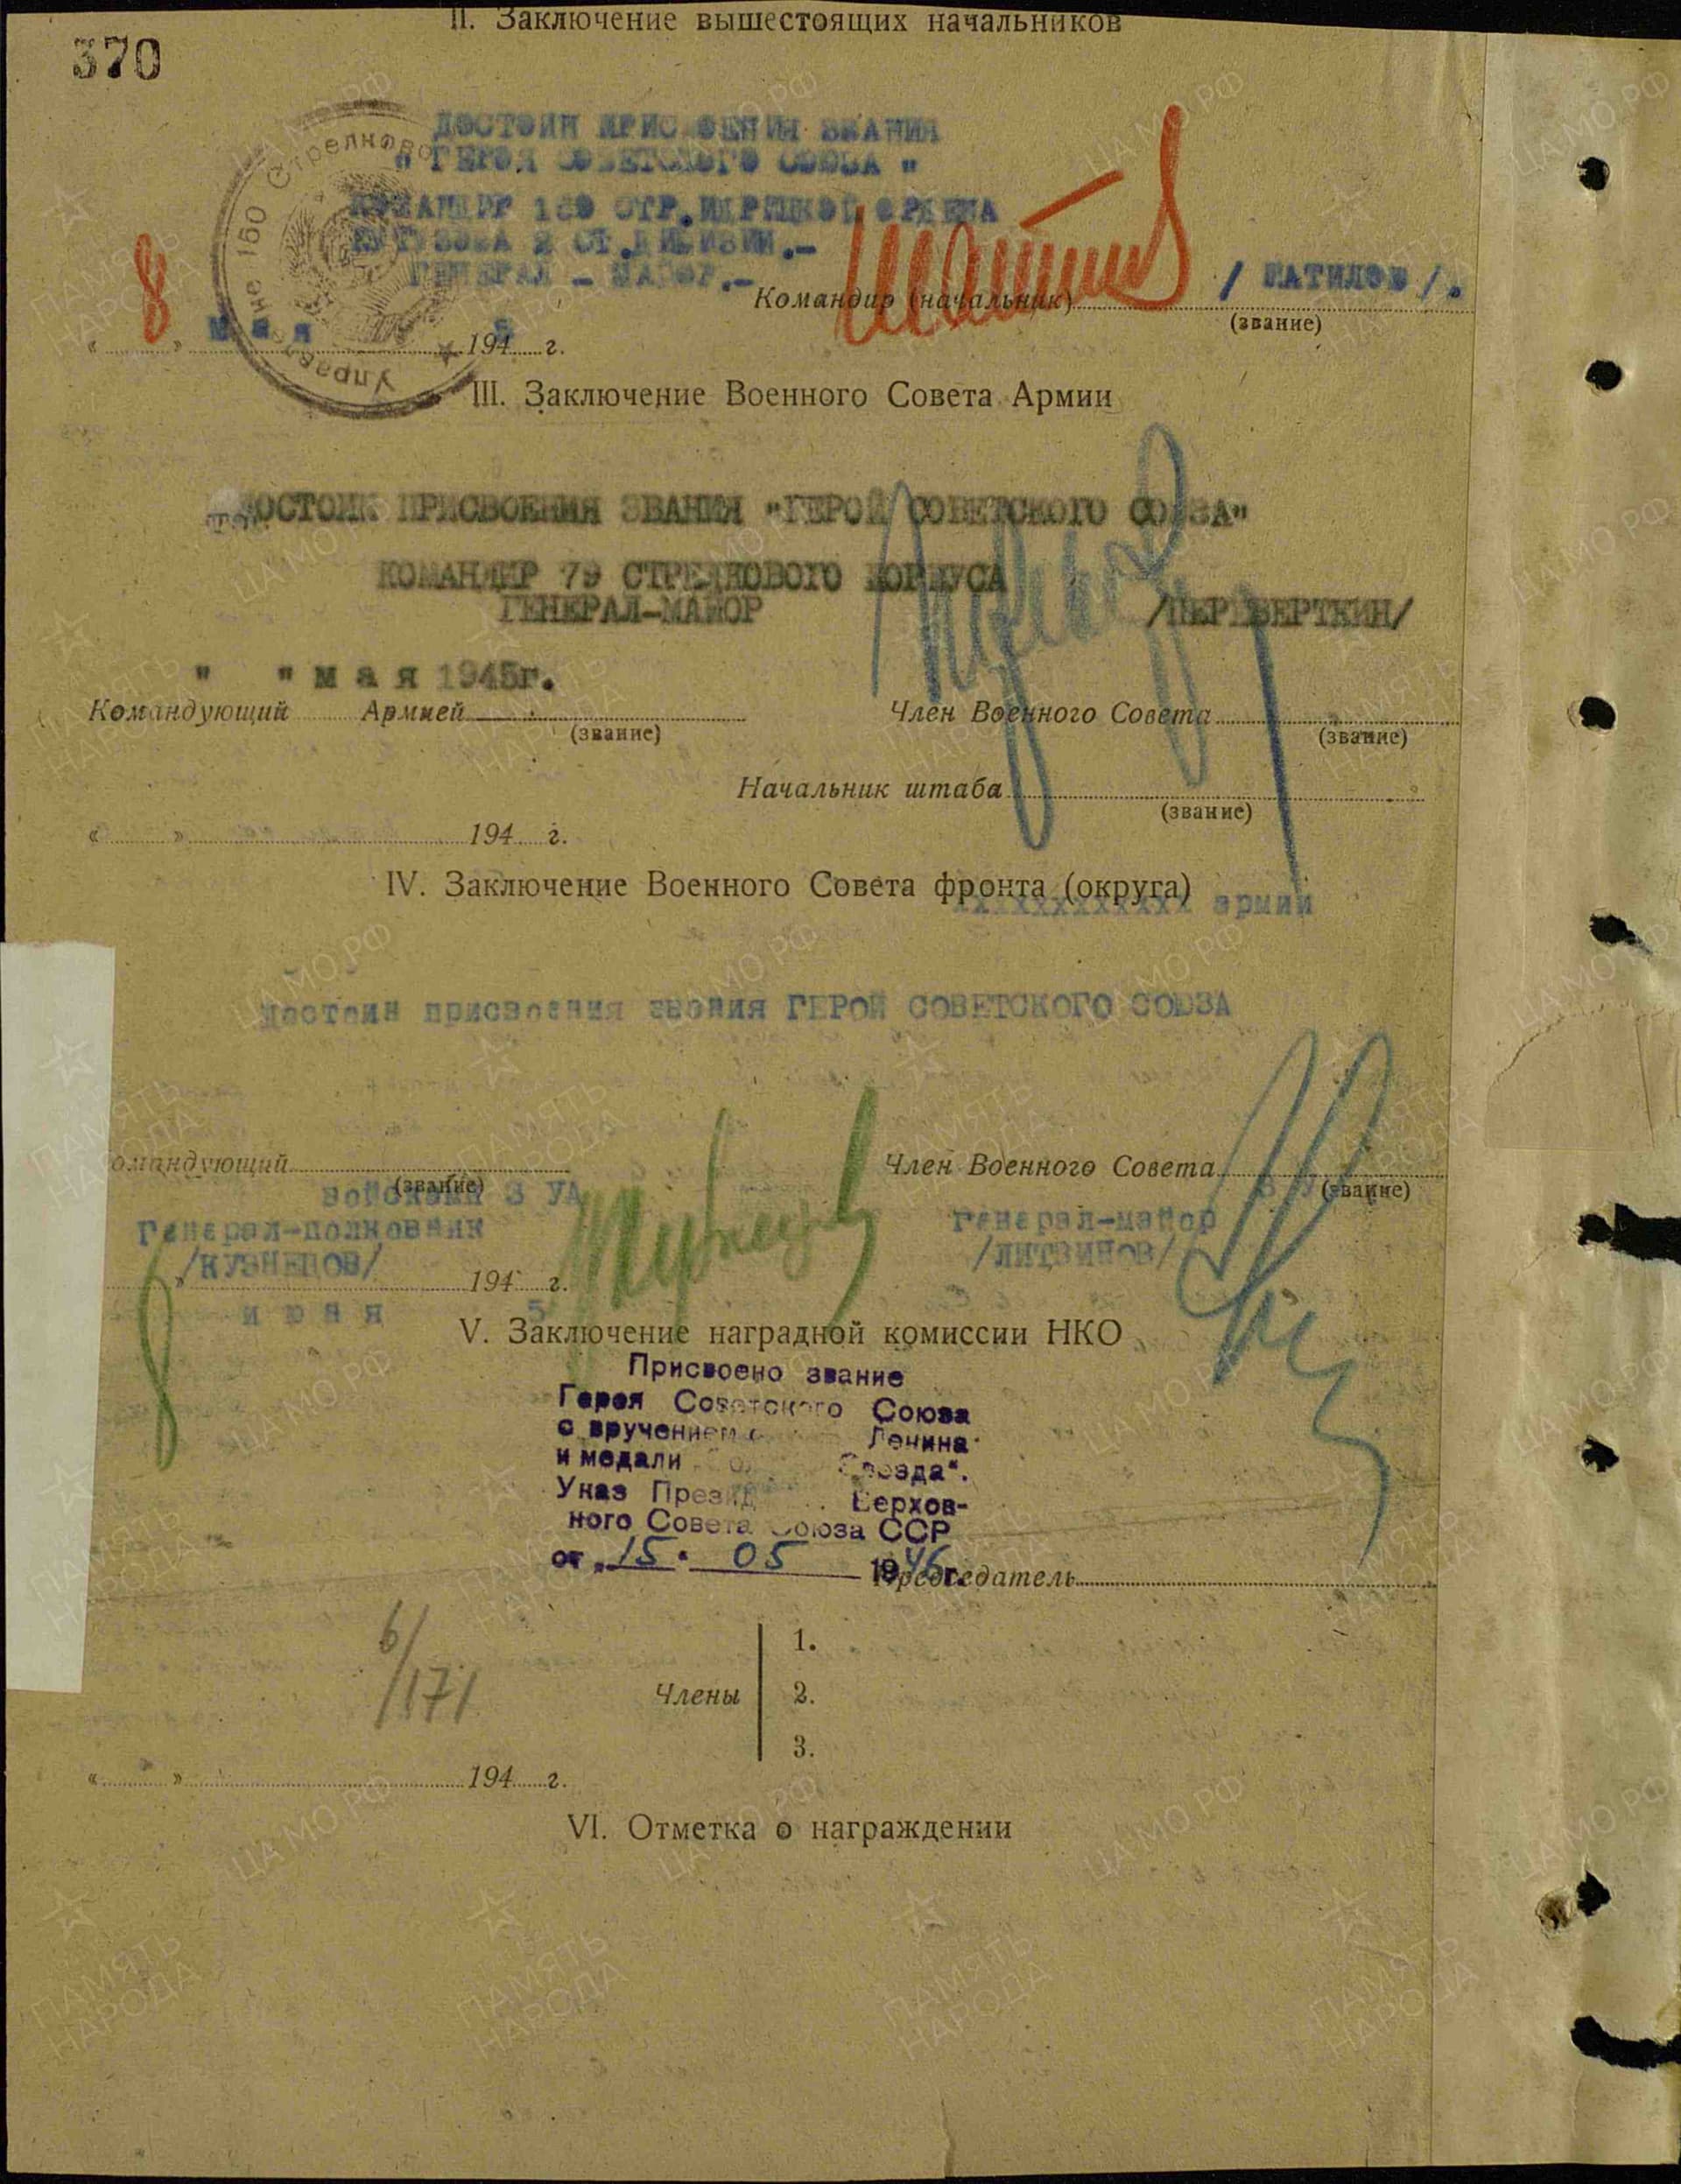 II. Заключение вышестоящих начальников
370
ДОСТОИН ПРИСВОЕНИЯ ЗВАНИЯ
" ГЕРОЯ СОВЕТСКОГО СОЮЗА "
КОМАНДИР 150 СТР.ИДРИЦКОЙ ОРДЕНА
КУТУЗОВА 2 СТ.ДИВИЗИИ.-
ГЕНЕРАЛ - МАЙОР.-
Командир (начальник) Шатилов / ШАТИЛОВ /.
(звание)
« 8 » мая 1945 г.
150 Стрелково
Управле
III. Заключение Военного Совета Армии
ДОСТОИН ПРИСВОЕНИЯ ЗВАНИЯ "ГЕРОЙ СОВЕТСКОГО СОЮЗА"
КОМАНДИР 79 СТРЕЛКОВОГО КОРПУСА
ГЕНЕРАЛ-МАЙОР /ПЕРЕВЕРТКИН/
" " мая 1945г.
Командующий Армией Член Военного Совета
(звание) (звание)
Начальник штаба
(звание)
« » 194 г.
IV. Заключение Военного Совета фронта (округа)
ххххххххххххх армии
достоин присвоения звания ГЕРОЙ СОВЕТСКОГО СОЮЗА
омандующий Член Военного Совета
(звание) (звание)
войсками 3 УА
Генерал-полковник генерал-майор
/КУЗНЕЦОВ/ /ЛИТВИНОВ/
8 » июня 1945 г.
V. Заключение наградной комиссии НКО
Присвоено звание
Героя Советского Союза
с вручением Ленина
и медали Звезда".
Указ Презид Верхов-
ного Совета Союза ССР
от „15" 05 1946г.
Председатель
6/
/171
Члены
1.
2.
3.
« » 194 г.
VI. Отметка о награждении